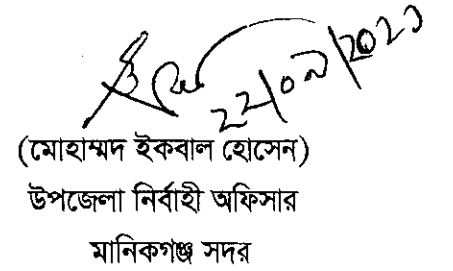 ২২/০৯/২০২১
(মোহাম্মদ ইকবাল হোসেন)
উপজেলা নির্বাহী অফিসার
মানিকগঞ্জ সদর